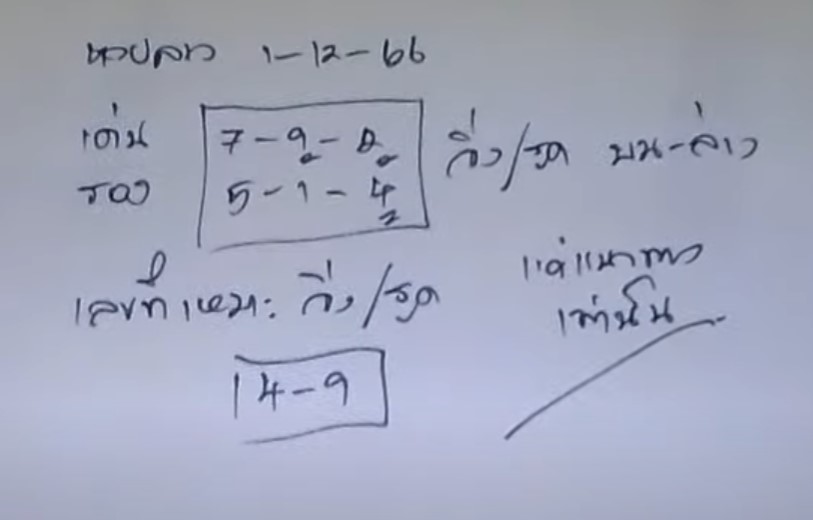 หวยลาว 1-12-66
เด่น 7-9-8 วิ่ง/รูด บน-ล่าง
รอง 5-1-4
2
เลขที่เหมาะ วิ่ง/รูด
แค่แนวทาง
เท่านั้น
4-9